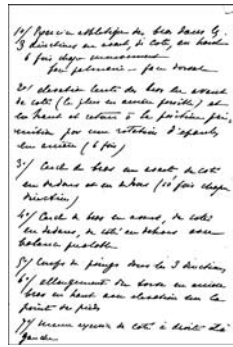 1°/ Exercice athlétique des bras dans les
3 directions en avant, de côté, en haut
6 fois chaque mouvement
face palmaire – face dorsale
2°/ élévation lente des bras en avant
de côté (le plus en arrière possible) et
en haut et retour à la position
par une rotation d'épaules
en arrière (6 fois)
3°/ Cercle de bras en avant de côté
en dedans et en dehors (10 fois chaque
direction)
4°/ Cercle de bras en avant, de côté
en dedans, de côté en dehors avec
5°/ Coups de poings dans les 3 directions
6°/ allongement du en arrière
bras en haut avec élévation sur la
pointe des pieds
7°/ même exercice de côté à droite et à
gauche